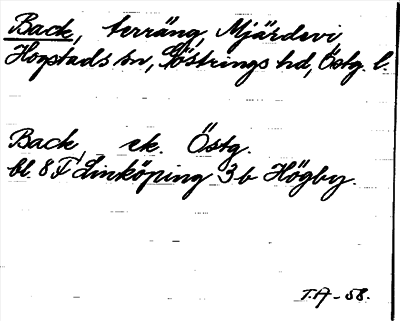 Back, terräng, Mjärdevi
Hogstads sn, Göstrings hd, Östg. l.
Back, ek. Östg.
bl. 8 F Linköping 3 b Högby.
T.A - 58.